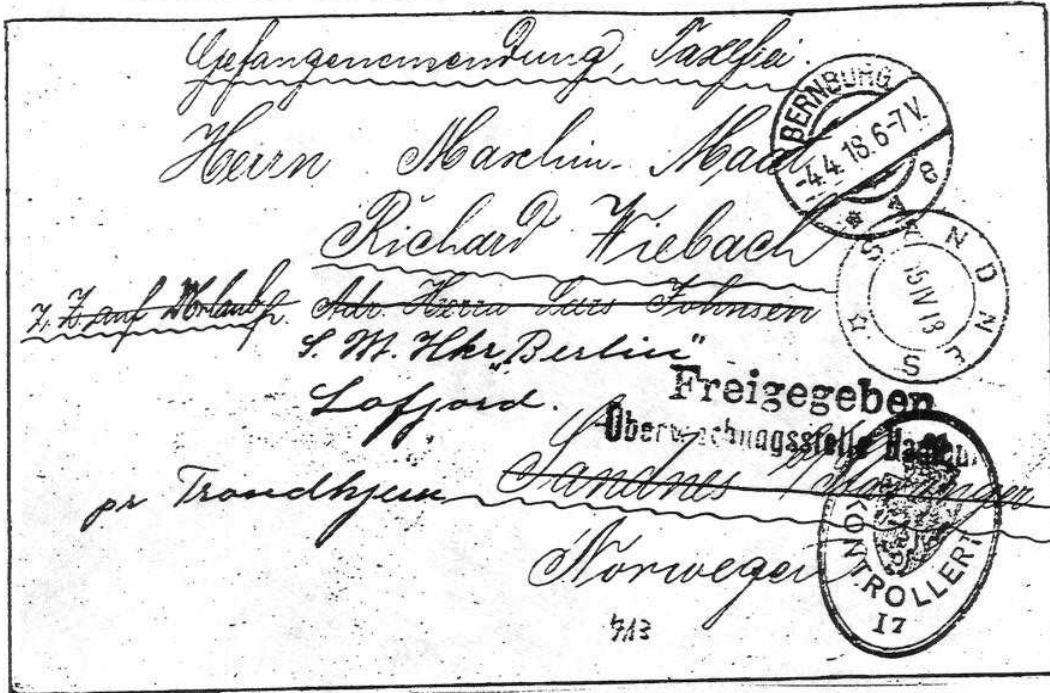 Gefangenensendung, Taxfrei.
Herrn Maschin. Maat
Richard Wiebach
z. Z. auf Urlaub p. Adr. Herrn Lars Johnsen
S. M. Hkr. "Berlin"
Lofjord.
pr Trondhjem Sandnes
Norwegen
713
BERNBURG
-4.4.18.6-7V.
* 8
SANDNES
15 IV 18
Freigegeben
KONTROLLERT
17